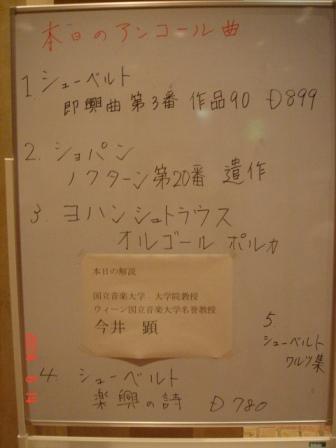 本日のアンコール曲
1. シューベルト
即興曲 第3番 作品90 D899
2. ショパン
ノクターン第20番 遺作
3. ヨハンシュトラウス
オルゴール ポルカ
本日の解説
国立音楽大学 大学院教授
ウィーン国立音楽大学名誉教授
今井 顕
4. シューベルト
楽興の詩 D780
5.
シューベルト
ワルツ集